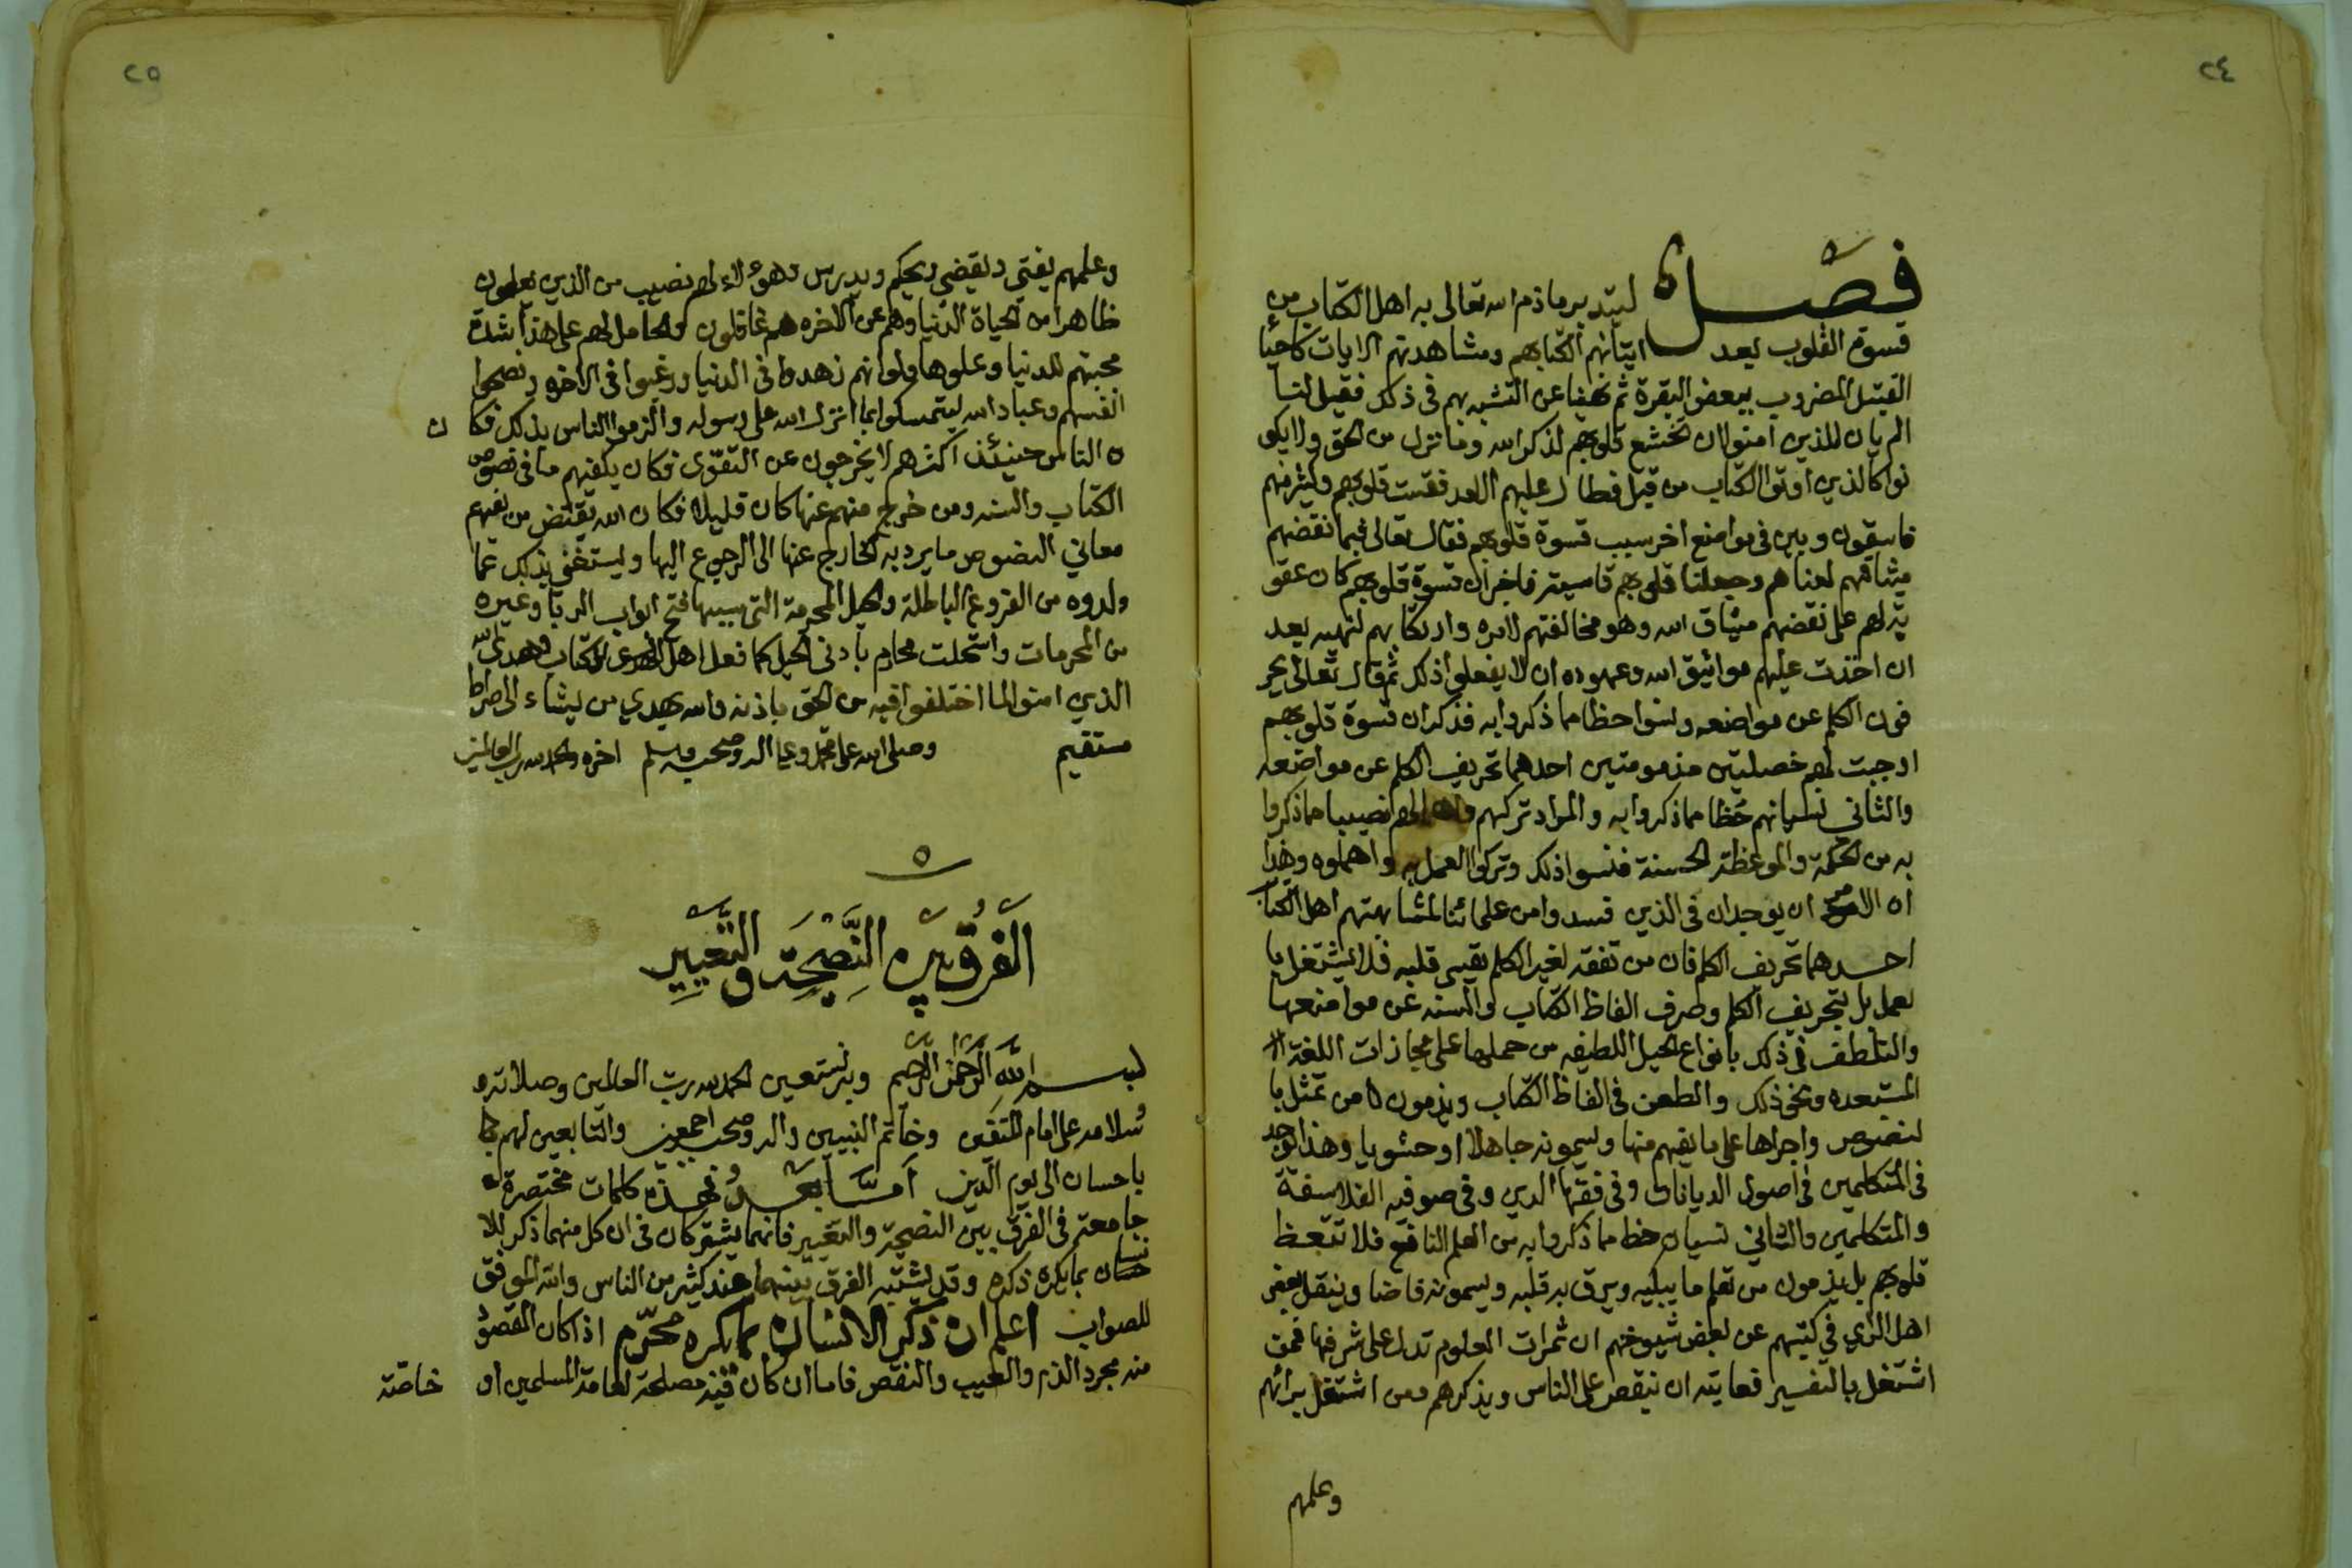 ٢٤
فصل ليتدبر ما ذم الله تعالى به اهل الكتاب من
قسوة القلوب بعد ايتائهم الكتاب ومشاهدتهم الايات كاحيا
القتيل المضروب ببعض البقرة ثم نهينا عن التشبه بهم في ذلك فقيل لنا
الم يان للذين امنوا ان تخشع قلوبهم لذكر الله وما نزل من الحق ولا يكو
نوا كالذين اوتوا الكتاب من قبل فطال عليهم الامد فقست قلوبهم وكثير منهم
فاسقون وبين في مواضع اخر سبب قسوة قلوبهم فقال تعالى فبما نقضهم
ميثاقهم لعناهم وجعلنا قلوبهم قاسية فاخبر ان قسوة قلوبهم كان عقو
بة لهم على نقضهم ميثاق الله وهو مخالفتهم لامره وارتكابهم لنهيه بعد
ان اخذت عليهم مواثيق الله وعهوده ان لا يفعلوا ذلك ثم قال تعالى يحر
فون الكلم عن مواضعه ونسوا حظا مما ذكروا به فذكر ان قسوة قلوبهم
اوجبت لهم خصلتين مذمومتين احدهما تحريف الكلم عن مواضعه
والثاني نسيانهم حظا مما ذكروا به والمراد تركهم واهمالهم نصيبا مما ذكروا
به من الحكمة والموعظة الحسنة فنسوا ذلك وتركوا العمل به واهملوه وهذا
ان الامرين ان يوجدان في الذين فسدوا من علمائنا لمشابهتهم اهل الكتاب
احدهما تحريف الكلم فان من تفقه لغير الكلم يقسى قلبه فلا يشتغل با
لعمل بل بتحريف الكلم وصرف الفاظ الكتاب والسنه عن مواضعها
والتلطف في ذلك بانواع الحيل اللطيفه من حملها على مجازات اللغة
المستبعده ونحو ذلك والطعن في الفاظ الكتاب ويذمون من تمثل با
لنصوص واجراها على ما يفهم منها ويسمونه جاهلا او حشويا وهذا يوجد
في المتكلمين في اصول الديانات وفي فقها الدين وفي صوفيه الفلاسفة
والمتكلمين والثاني نسيان حظ مما ذكروا به من العلم النافع فلا تتعظ
قلوبهم بل يذمون من تعلم ما يبكيه ويرق به قلبه ويسمونه قاصا وينقل بعض
اهل الراي في كتبهم عن بعض شيوخهم ان ثمرات العلوم تدل على شرفها فمن
اشتغل بالتفسير فغايته ان يقص على الناس ويذكرهم ومن اشتغل برائهم
وعلمهم
٢٥
وعلمهم يفتي ويقضي ويحكم ويدرس وهؤلاء لهم نصيب من الذين يعلمون
ظاهرا من الحياة الدنيا وهم عن الاخره هم غافلون والحامل لهم على هذا شدة
محبتهم للدنيا وعلوها ولو انهم زهدوا في الدنيا ورغبوا في الاخره ونصحوا
انفسهم وعباد الله ليتمسكوا بما انزل الله على رسوله والزموا الناس بذلك فكا ن
الناس حينئذ اكثرهم لا يخرجون عن التقوى فكان يكفيهم ما في نصوص
الكتاب والسنه ومن خرج منهم عنها كان قليلا فكان الله يقيض من يفهم
معاني النصوص ما يرد به الخارج عنها الى الرجوع اليها ويستغنى بذلك عما
ولدوه من الفروع الباطلة والحيل المحرمة التي بسببها فتح ابواب الربا وغيره
من المحرمات واستحلت محارم بادنى الحيل كما فعل اهل الكتاب وهدى الله
الذين امنوا لما اختلفوا فيه من الحق باذنه والله يهدي من يشاء الى صراط
مستقيم وصلى الله على محمد وعلى اله وصحبه وسلم اخره والحمد لله رب العالمين
٥
الفرق بين النصيحة والتعيير
بسم الله الرحمن الرحيم وبه نستعين الحمد لله رب العالمين وصلاته و
سلامه على امام المتقين وخاتم النبيين واله وصحبه اجمعين والتابعين لهم
باحسان الى يوم الدين اما بعد فهذه كلمات مختصرة
جامعة في الفرق بين النصيحة والتعيير فانهما يشتركان في ان كل منهما ذكر للا
نسان بما يكره ذكره وقد يشتبه الفرق بينهما عند كثير من الناس والله الموفق
للصواب اعلم ان ذكر الانسان بما يكره محرم اذا كان المقصود
منه مجرد الذم والعيب والنقص فاما ان كان فيه مصلحة لعامة المسلمين او خاصة